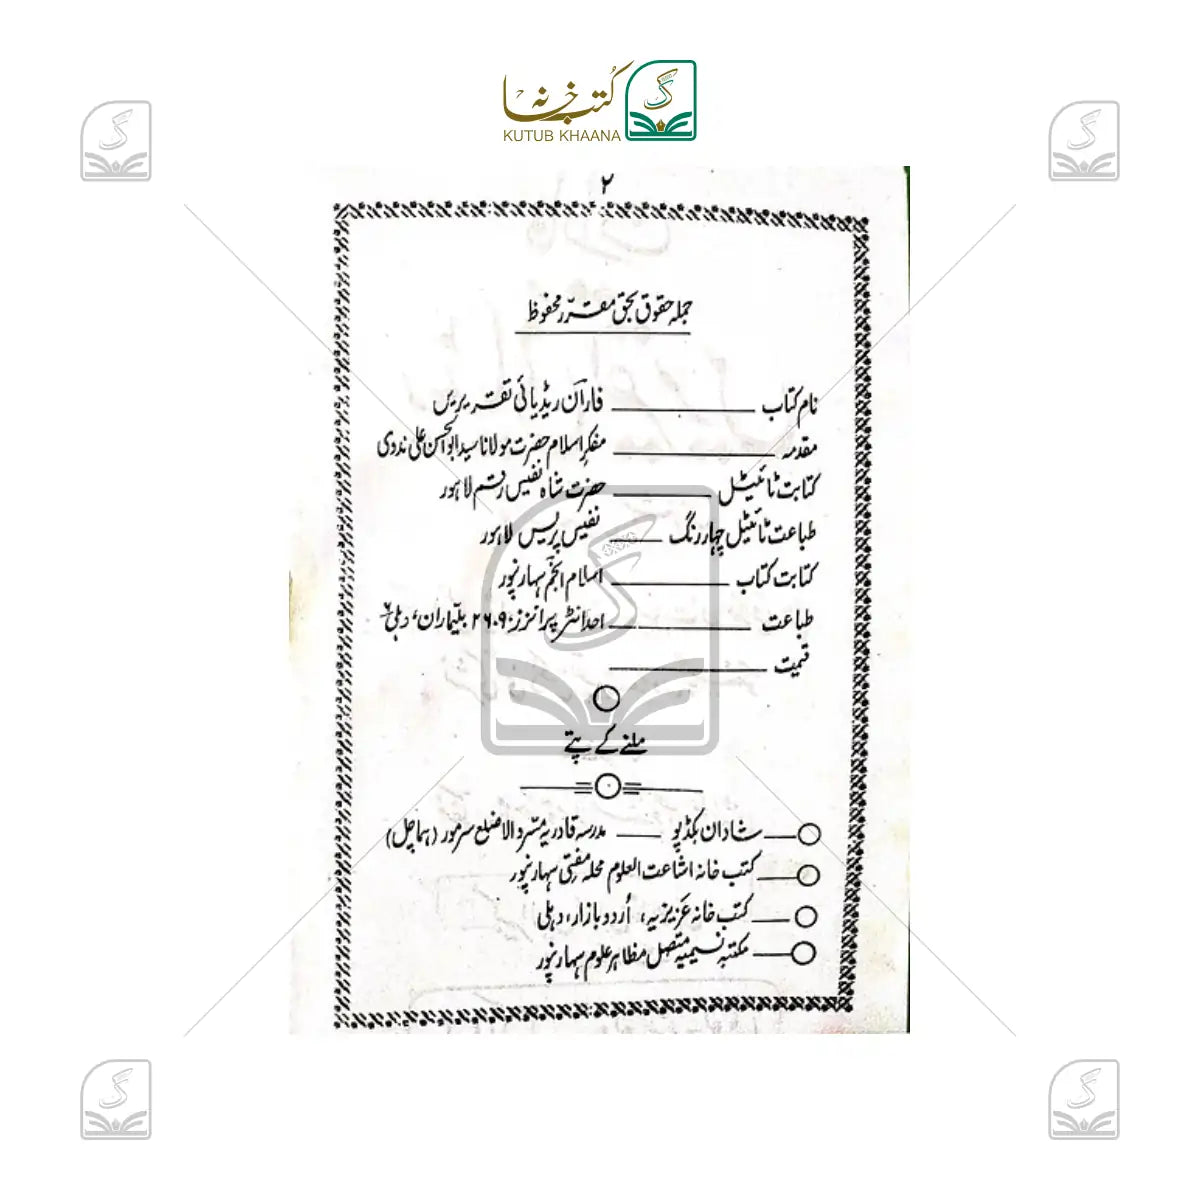 کتب خانہ
KUTUB KHAANA
۲
جملہ حقوق بحق مقرر محفوظ
نام کتاب ــــــ فاران ریڈیائی تقریریں
مقدمہ ــــــ مفکر اسلام حضرت مولانا سید ابوالحسن علی ندوی
کتابت ٹائیٹل ــــــ حضرت شاہ نفیس رقم لاہور
طباعت ٹائیٹل چہار رنگ ــــــ نفیس پریس لاہور
کتابت کتاب ــــــ اسلام انجم سہارنپور
طباعت ــــــ احد انٹرپرائزز، ۲۶۰۹ بلیماران، دہلی ۶
قیمت ــــــ
ملنے کے پتے
شاداں بکڈپو ــــــ مدرسہ قادریہ مسروالا ضلع سرمور (ہماچل)
کتب خانہ اشاعت العلوم محلہ مفتی سہارنپور
کتب خانہ عزیزیہ، اُردو بازار، دہلی
مکتبہ نسیمیہ متصل مظاہر علوم سہارنپور